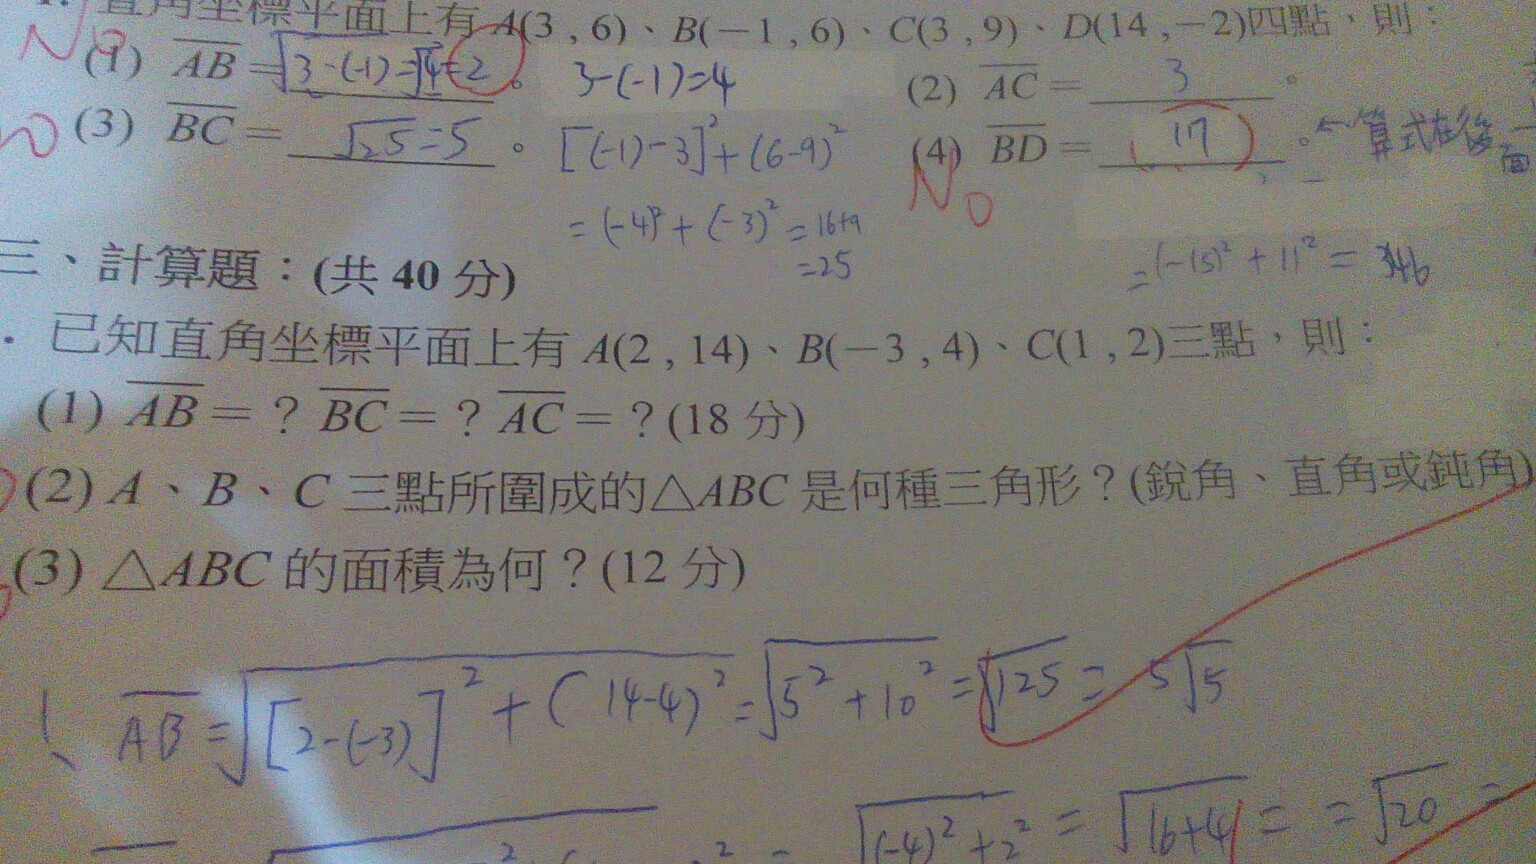 直角坐標平面上有 A(3 , 6)、B(−1 , 6)、C(3 , 9)、D(14 , −2)四點，則：
No
(1) AB = √3-(-1)=√4=2 。 3-(-1)=4 (2) AC = 3 。
(3) BC = √25=5 。 [(-1)-3]²+(6-9)² (4) BD = 17 。 ←算式在後面
No
= (-4)²+(-3)² = 16+9
=25
= (-15)²+11² = 346
三、計算題：(共 40 分)
. 已知直角坐標平面上有 A(2 , 14)、B(−3 , 4)、C(1 , 2)三點，則：
(1) AB = ? BC = ? AC = ? (18 分)
(2) A、B、C 三點所圍成的△ABC 是何種三角形？(銳角、直角或鈍角)
(3) △ABC 的面積為何？(12 分)
1、 AB = √[2-(-3)]²+(14-4)² = √5²+10² = √125 = 5√5
√(-4)²+2² = √16+4 = = √20 =